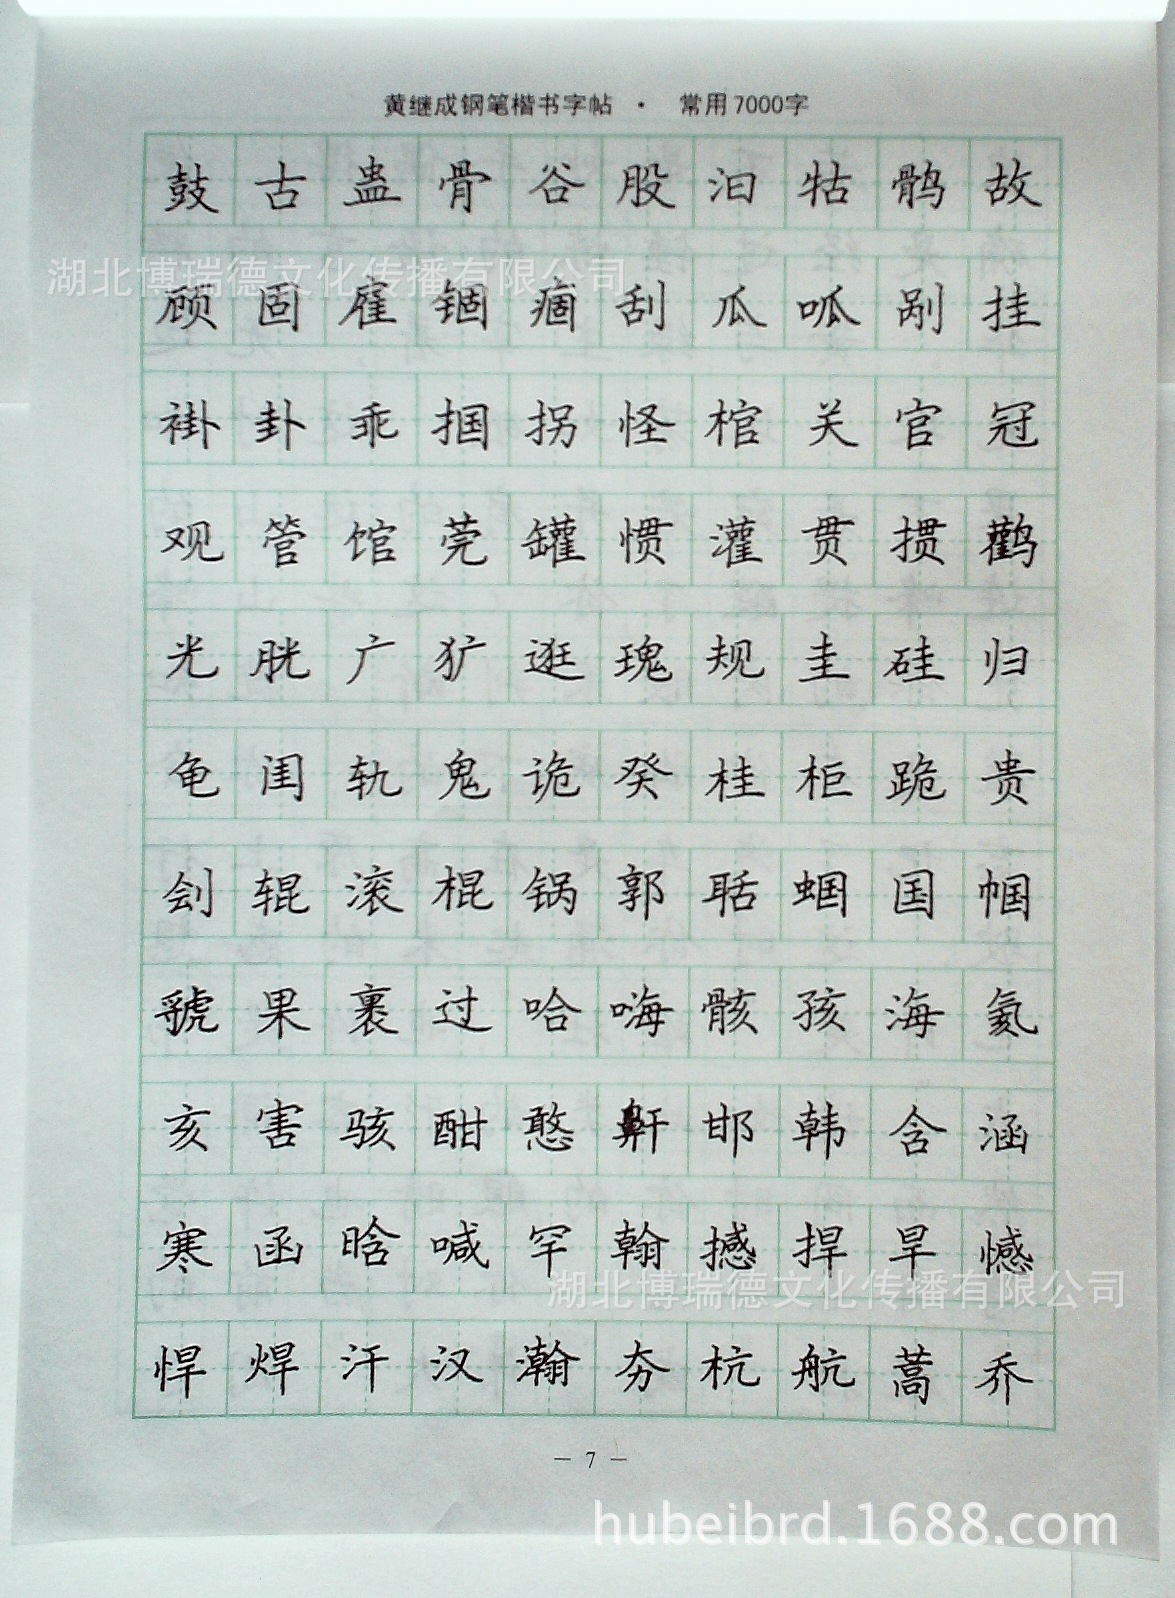 黄继成钢笔楷书字帖 · 常用7000字
鼓 古 蛊 骨 谷 股 汩 牯 鹘 故
湖北博瑞德文化传播有限公司
顾 固 雇 锢 痼 刮 瓜 呱 剐 挂
褂 卦 乖 掴 拐 怪 棺 关 官 冠
观 管 馆 莞 罐 惯 灌 贯 掼 鹳
光 胱 广 犷 逛 瑰 规 圭 硅 归
龟 闺 轨 鬼 诡 癸 桂 柜 跪 贵
刽 辊 滚 棍 锅 郭 聒 蝈 国 帼
虢 果 裹 过 哈 嗨 骸 孩 海 氦
亥 害 骇 酣 憨 鼾 邯 韩 含 涵
寒 函 晗 喊 罕 翰 撼 捍 旱 憾
湖北博瑞德文化传播有限公司
悍 焊 汗 汉 瀚 夯 杭 航 蒿
— 7 —
hubeibrd.1688.com